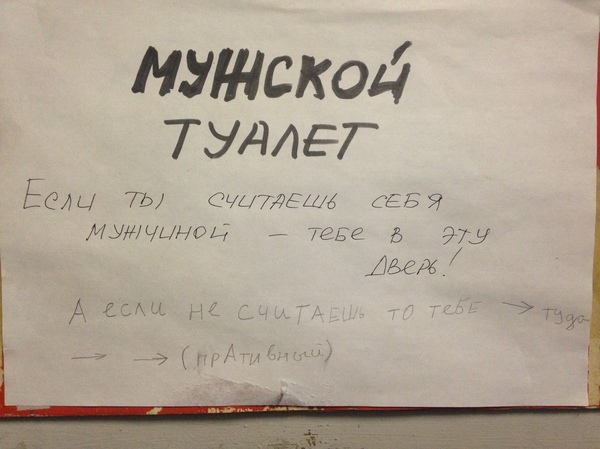 МУЖСКОЙ
ТУАЛЕТ
Если ты считаешь себя
мужчиной – тебе в эту
дверь!
А если не считаешь то тебе → туда
→ → (пРАтивный)